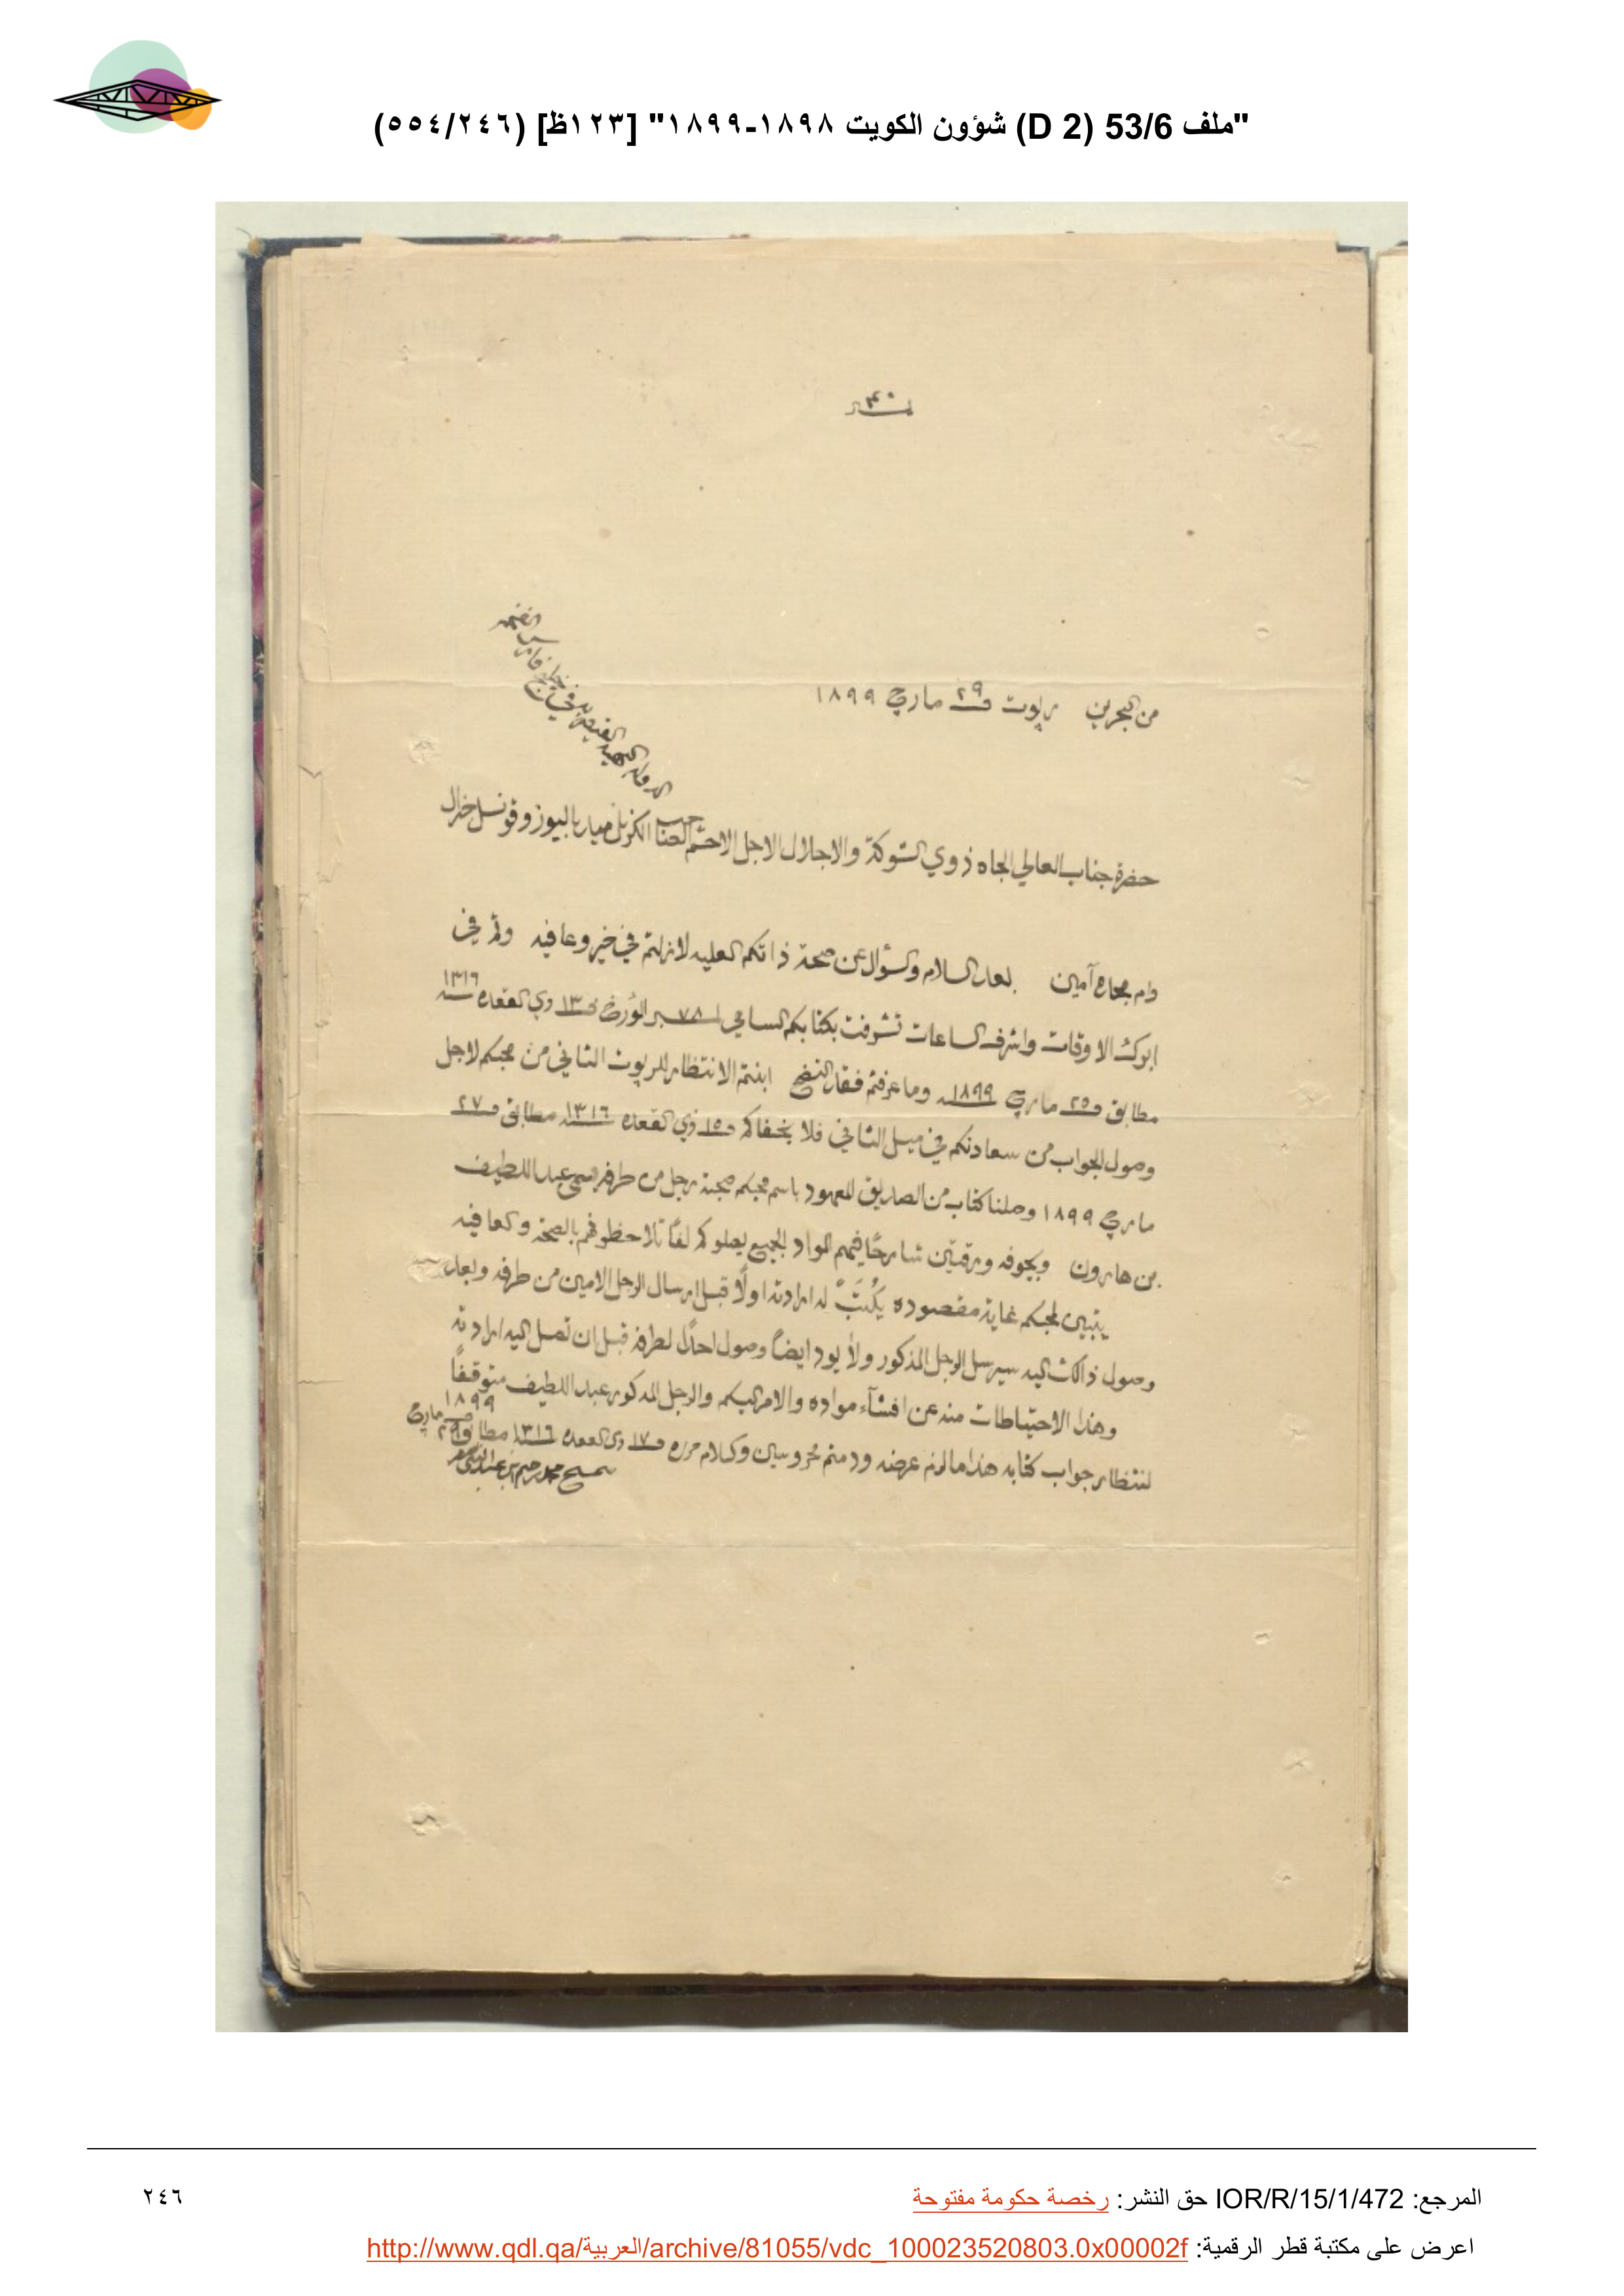 "ملف 53/6 (D 2) شؤون الكويت ١٨٩٨-١٨٩٩" [١٢٣ظ] (٥٥٤/٢٤٦)
من البحرين ريوت ٢٩ مارچ ١٨٩٩
حضرة جناب العالي الجاه ذوي الشوكة والاجلال الاجل الاحشم الكرنل ميد باليوز وقونسل جنرال
دام بحاه آمين بعد السلام والسؤال عن صحة ذاتكم العليه لازلتم في خير وعافيه ثم في
ابرك الاوقات واشرف الساعات تشرفت بكتابكم السامي ٧٨ المؤرخ ١٣ ذي القعده ١٣١٦
مطابق ٢٥ مارچ ١٨٩٩ وما عرفتم فقد اتضح الانتظار للريوت الثاني من محبكم لاجل
وصول الجواب من سعادتكم في ميل الثاني فلا يخفاكم ١٥ ذي القعده ١٣١٦ مطابق ٢٧
مارچ ١٨٩٩ وصلنا كتاب من الصديق المعهود باسم محبكم صحبة رجل من طرفه يسمى عبد اللطيف
بن هارون وبجوفه ورقتين شارحًا فيهم المواد الجميع يصلوكم لفًا تلاحظوهم بالصحة والعافيه
يتبين لمحبكم غاية مقصوده يُكتب له ارادته اولًا قبل ارسال الرجل الامين من طرفه وبعد
وصول ذالك اليه سيرسل الرجل المذكور ولا يود ايضًا وصول احدًا لطرفه قبل ان تصل اليه ارادته
وهذا الاحتياطات منه عن افشآء مواده والامر اليكم والرجل المذكور عبد اللطيف متوقفًا
لنتظار جواب كتابه هذا ما لزم عرضه ودمتم محروسين والسلام حرره ١٧ ذي القعده ١٣١٦ مطابق ٢٩ مارچ ١٨٩٩
محمد رحيم بن عبد النبي
المرجع: IOR/R/15/1/472 حق النشر: رخصة حكومة مفتوحة
٢٤٦
اعرض على مكتبة قطر الرقمية: http://www.qdl.qa/العربية/archive/81055/vdc_100023520803.0x00002f